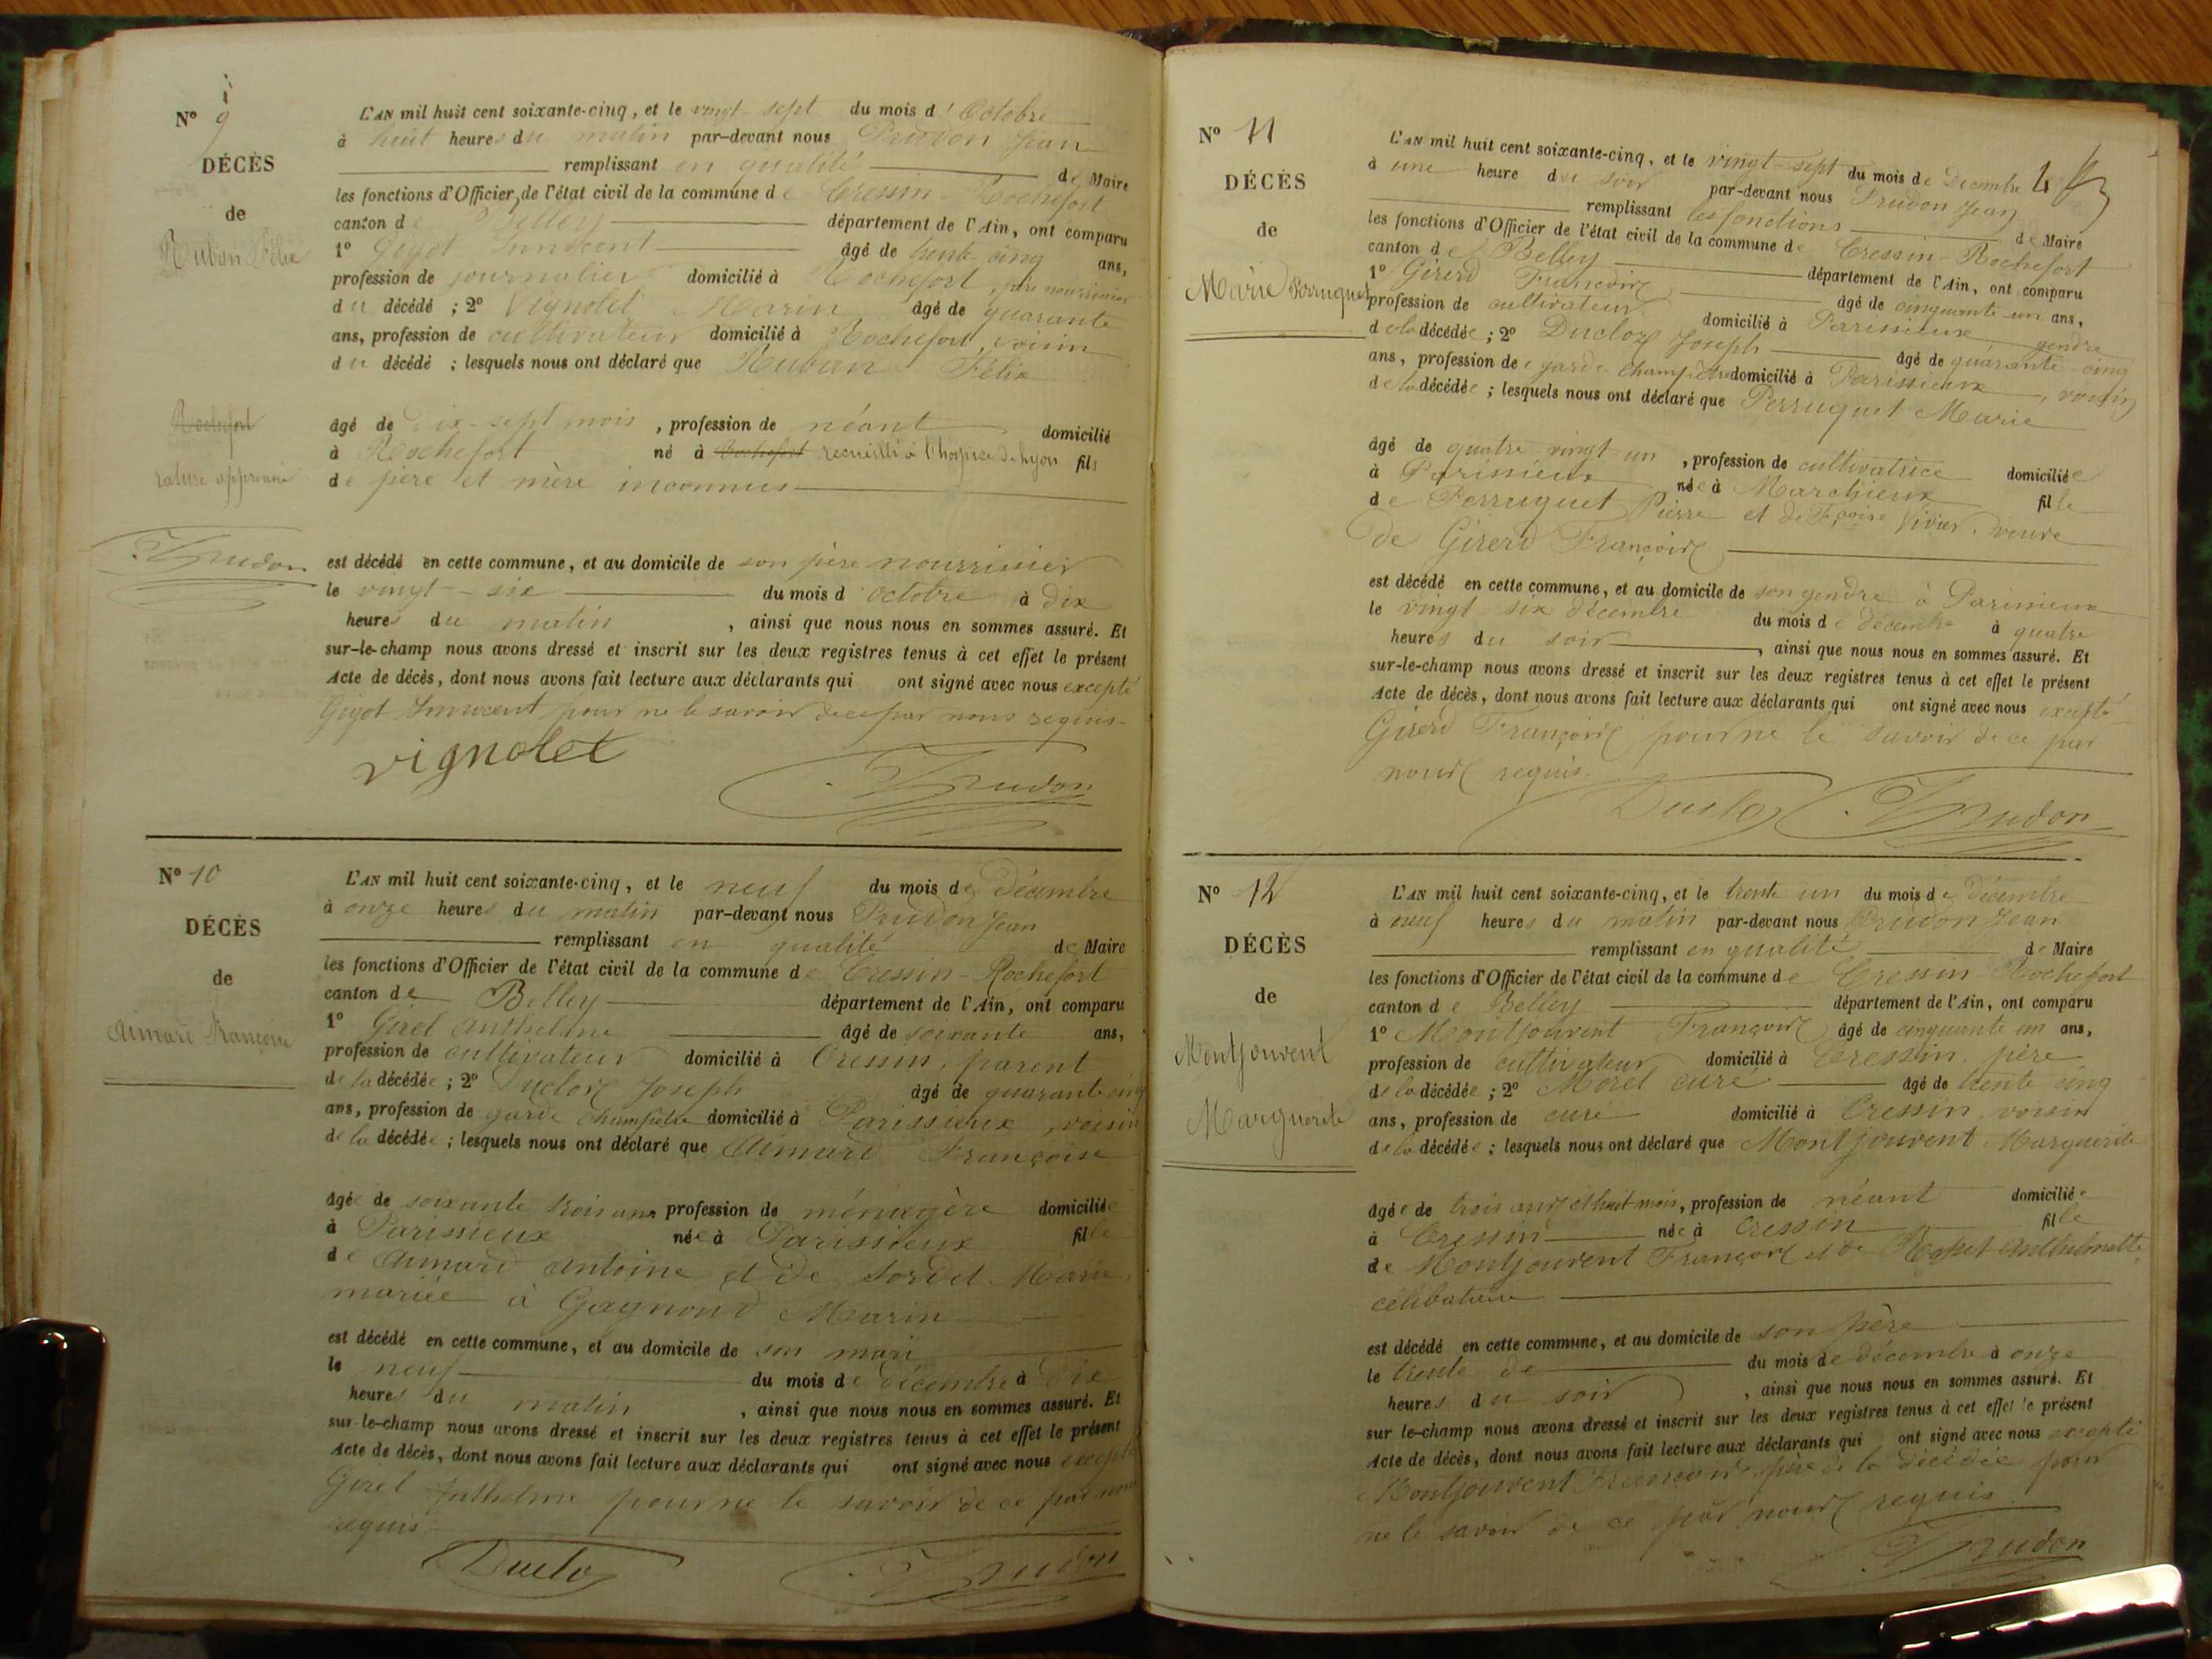 N° 9
DÉCÈS
de
Ruban Félix
L'AN mil huit cent soixante-cinq, et le vingt-sept du mois d'Octobre
à huit heures du matin par-devant nous Prudon Jean
remplissant en qualité de Maire
les fonctions d'Officier de l'état civil de la commune de Cressin-Rochefort
canton de Belley département de l'Ain, ont comparu
1° Gigot Innocent âgé de trente cinq ans,
profession de journalier domicilié à Rochefort, père nourricier
du décédé ; 2° Vignolet Marin âgé de quarante
ans, profession de cultivateur domicilié à Rochefort, voisin
du décédé ; lesquels nous ont déclaré que Ruban Félix
Rochefort
rature approuvée
Prudon
âgé de Dix-sept mois, profession de néant domicilié
à Rochefort né à Rochefort recueilli à l'hospice de Lyon fils
de père et mère inconnus
est décédé en cette commune, et au domicile de son père nourricier
le vingt-six du mois d'octobre à dix
heures du matin, ainsi que nous nous en sommes assuré. Et
sur-le-champ nous avons dressé et inscrit sur les deux registres tenus à cet effet le présent
Acte de décès, dont nous avons fait lecture aux déclarants qui ont signé avec nous excepté
Gigot Innocent pour ne le savoir de ce par nous requis.
vignolet Prudon
N° 10
DÉCÈS
de
Aimard Françoise
L'AN mil huit cent soixante-cinq, et le neuf du mois de Décembre
à onze heures du matin par-devant nous Prudon Jean
remplissant en qualité de Maire
les fonctions d'Officier de l'état civil de la commune de Cressin-Rochefort
canton de Belley département de l'Ain, ont comparu
1° Girel Anthelme âgé de soixante ans,
profession de cultivateur domicilié à Cressin, parent
de la décédée ; 2° Ducloz Joseph âgé de quarante cinq
ans, profession de garde champêtre domicilié à Parissieux, voisin
de la décédée ; lesquels nous ont déclaré que Aimard Françoise
âgée de soixante trois ans profession de ménagère domiciliée
à Parissieux née à Parissieux fille
de Aimard Antoine et de Sordet Marie
mariée à Gagnoud Marin
est décédé en cette commune, et au domicile de son mari
le neuf du mois de Décembre à Dix
heures du matin, ainsi que nous nous en sommes assuré. Et
sur-le-champ nous avons dressé et inscrit sur les deux registres tenus à cet effet le présent
Acte de décès, dont nous avons fait lecture aux déclarants qui ont signé avec nous excepté
Girel Anthelme pour ne le savoir de ce par nous
requis.
Duclo Prudon
N° 11
DÉCÈS
de
Marie Perruquet
L'AN mil huit cent soixante-cinq, et le vingt-sept du mois de Décembre
à une heure du soir par-devant nous Prudon Jean
remplissant les fonctions de Maire
les fonctions d'Officier de l'état civil de la commune de Cressin-Rochefort
canton de Belley département de l'Ain, ont comparu
1° Girerd François âgé de cinquante-un ans,
profession de cultivateur domicilié à Parissieux gendre
de la décédée ; 2° Ducloz Joseph âgé de quarante-cinq
ans, profession de garde-champêtre domicilié à Parissieux, voisin
de la décédée ; lesquels nous ont déclaré que Perruquet Marie
âgé de quatre vingt un, profession de cultivatrice domiciliée
à Parissieux née à Marchieux fille
de Perruquet Pierre et de Fçoise Vivier. veuve
de Girerd François
est décédé en cette commune, et au domicile de son gendre à Parissieux
le vingt six décembre du mois de décembre à quatre
heures du soir, ainsi que nous nous en sommes assuré. Et
sur-le-champ nous avons dressé et inscrit sur les deux registres tenus à cet effet le présent
Acte de décès, dont nous avons fait lecture aux déclarants qui ont signé avec nous excepté
Girerd François pour ne le savoir de ce par
nous requis.
Duclo Prudon
N° 12
DÉCÈS
de
Montjouvent
Marguerite
L'AN mil huit cent soixante-cinq, et le trente un du mois de décembre
à neuf heures du matin par-devant nous Prudon Jean
remplissant en qualité de Maire
les fonctions d'Officier de l'état civil de la commune de Cressin-Rochefort
canton de Belley département de l'Ain, ont comparu
1° Montjouvent François âgé de cinquante un ans,
profession de cultivateur domicilié à Cressin, père
de la décédée ; 2° Morel curé âgé de trente cinq
ans, profession de curé domicilié à Cressin, voisin
de la décédée ; lesquels nous ont déclaré que Montjouvent Marguerite
âgée de trois ans et huit mois, profession de néant domiciliée
à Cressin née à Cressin fille
de Montjouvent François et de Rosset Anthelmette
célibataire
est décédé en cette commune, et au domicile de son père
le trente de du mois de décembre à onze
heures du soir, ainsi que nous nous en sommes assuré. Et
sur le-champ nous avons dressé et inscrit sur les deux registres tenus à cet effet le présent
Acte de décès, dont nous avons fait lecture aux déclarants qui ont signé avec nous excepté
Montjouvent François père de la décédée pour
ne le savoir de ce par nous requis.
Prudon